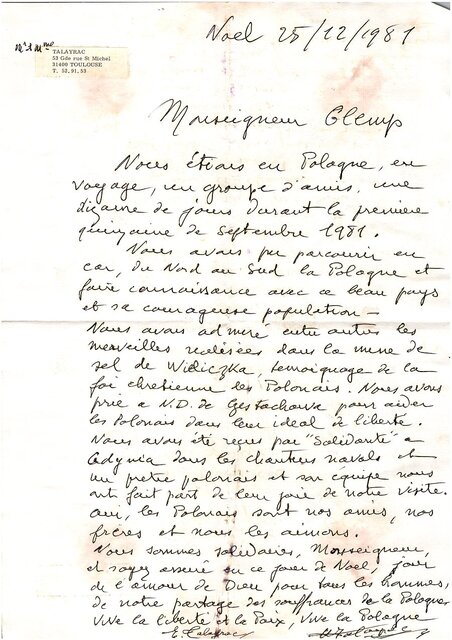 Noel 25/12/1981
Mr & Mme
TALAYRAC
53 Gde rue St Michel
31400 TOULOUSE
T. 52.91.53
Monseigneur Glemp
Nous étions en Pologne, en
voyage, un groupe d'amis, une
dizaine de jours durant la première
quinzaine de Septembre 1981.
Nous avons pu parcourir en
car, du Nord au Sud la Pologne et
faire connaissance avec ce beau pays
et sa courageuse population –
Nous avons admiré entre autres les
merveilles realisées dans la mine de
sel de Wieliczka, temoignage de la
foi chrétienne des Polonais. Nous avons
prié a N.D. de Czestachowa pour aider
les Polonais dans leur ideal de liberté.
Nous avons été reçus par "Solidarité" a
Gdynia dans les chantiers navals et
un prêtre polonais et son équipe nous
ont fait part de leur joie de notre visite.
oui, les Polonais sont nos amis, nos
frères et nous les aimons.
Nous sommes solidaires, Monseigneur,
et soyez assuré en ce jour de Noel, jour
de l'amour de Dieu pour tous les hommes,
de notre partage des souffrances de la Pologne.
Vive la liberté et la Paix, Vive la Pologne
E. Talayrac Talayrac